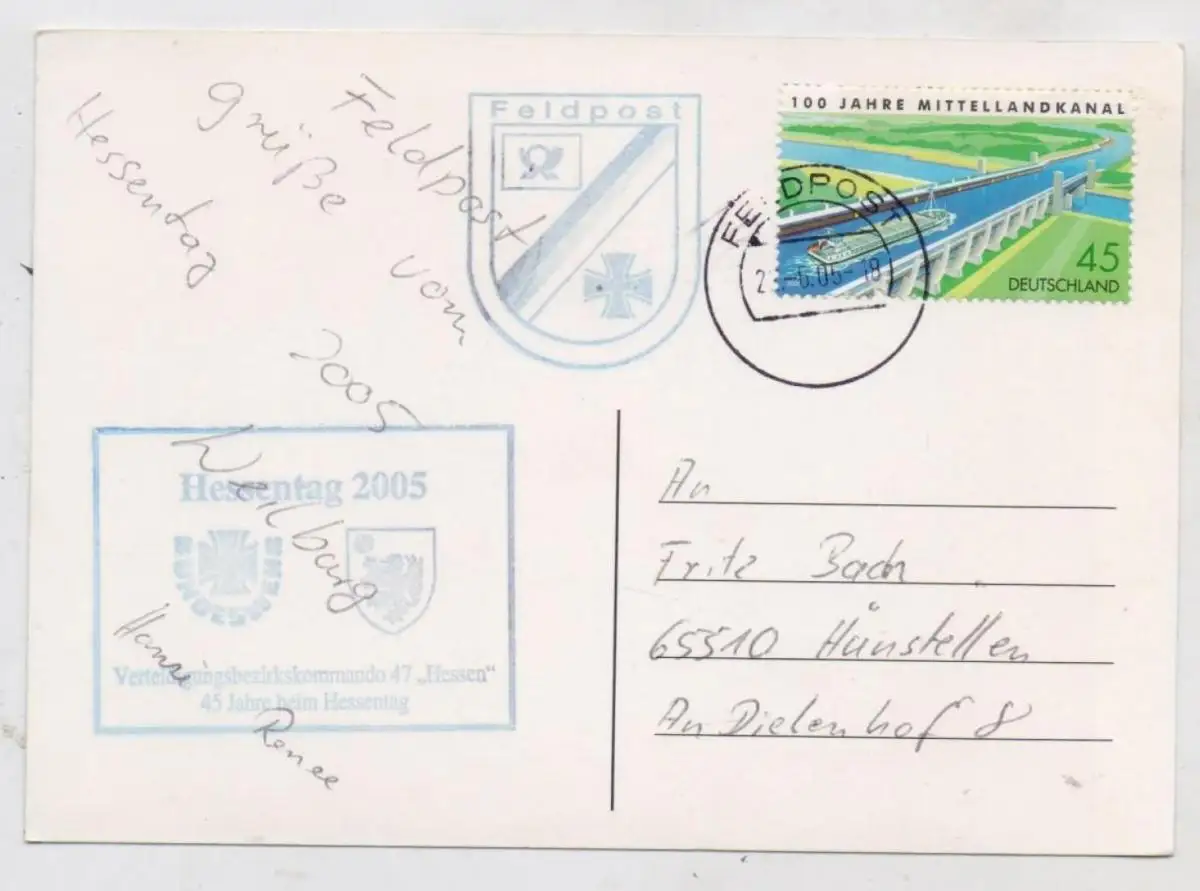 Feldpost
grüße vom
Hessentag
2005
Weilburg
Hansi
Renee
Feldpost
100 JAHRE MITTELLANDKANAL
45
DEUTSCHLAND
FELDPOST
.6.05-18
Hessentag 2005
BUNDESWEHR
Verteidigungsbezirkskommando 47 „Hessen“
45 Jahre beim Hessentag
An
Fritz Bach
65510 Hünstellen
An Dielenhof 8